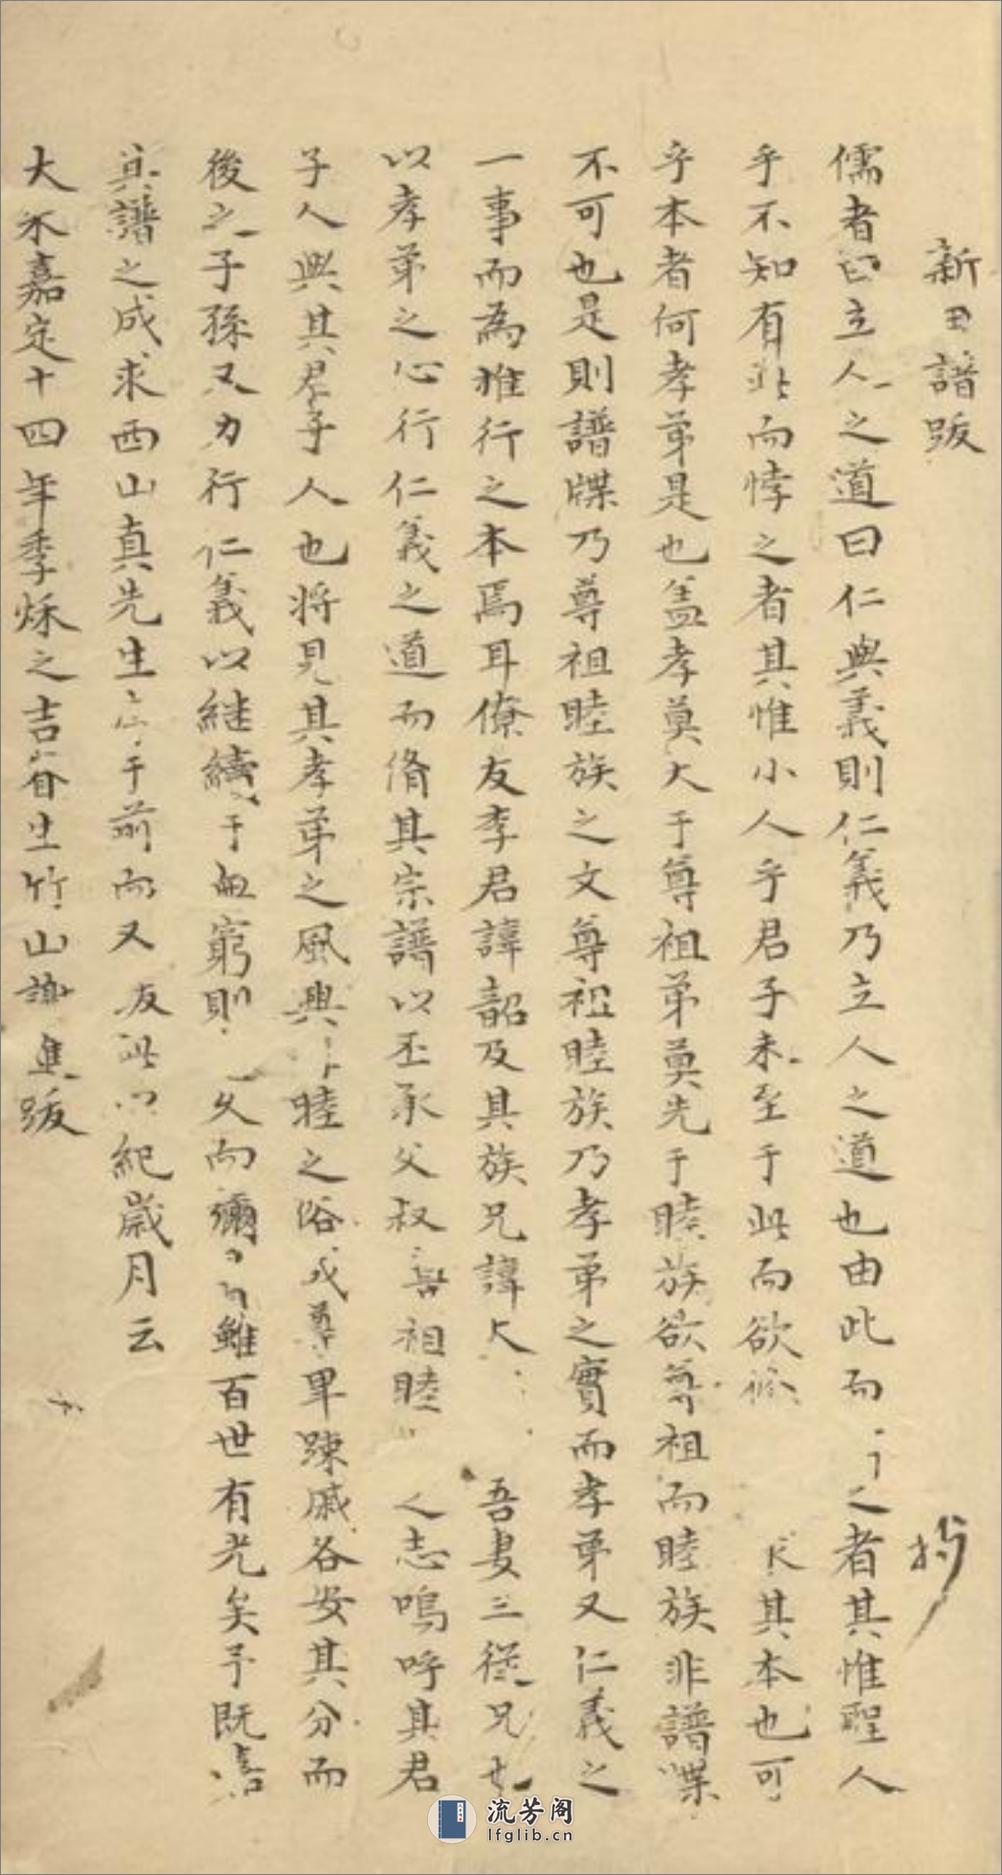 新田譜跋
儒者曰立人之道曰仁與義則仁義乃立人之道也由此而之者其惟聖人
乎不知有此而悖之者其惟小人乎君子未至于此而欲修其本也可
乎本者何孝弟是也盖孝莫大于尊祖弟莫先于睦族欲尊祖而睦族非譜牒
不可也是則譜牒乃尊祖睦族之文尊祖睦族乃孝弟之實而孝弟又仁義之
一事而為推行之本焉耳僚友李君諱韶及其族兄諱大吾妻三從兄也
以孝弟之心行仁義之道而脩其宗譜以丕承父叔祖睦之志嗚呼其君
子人與其君子人也將見其孝弟之風興睦之俗成尊卑踈戚各安其分而
後之子孫又力行仁義以繼續于無窮則久而彌雖百世有光矣予既嘉
其譜之成求西山真先生于前而又友此以紀歲月云
大宋嘉定十四年季秋之吉眷生竹山謝進跋
抄
流芳阁
lfglib.cn